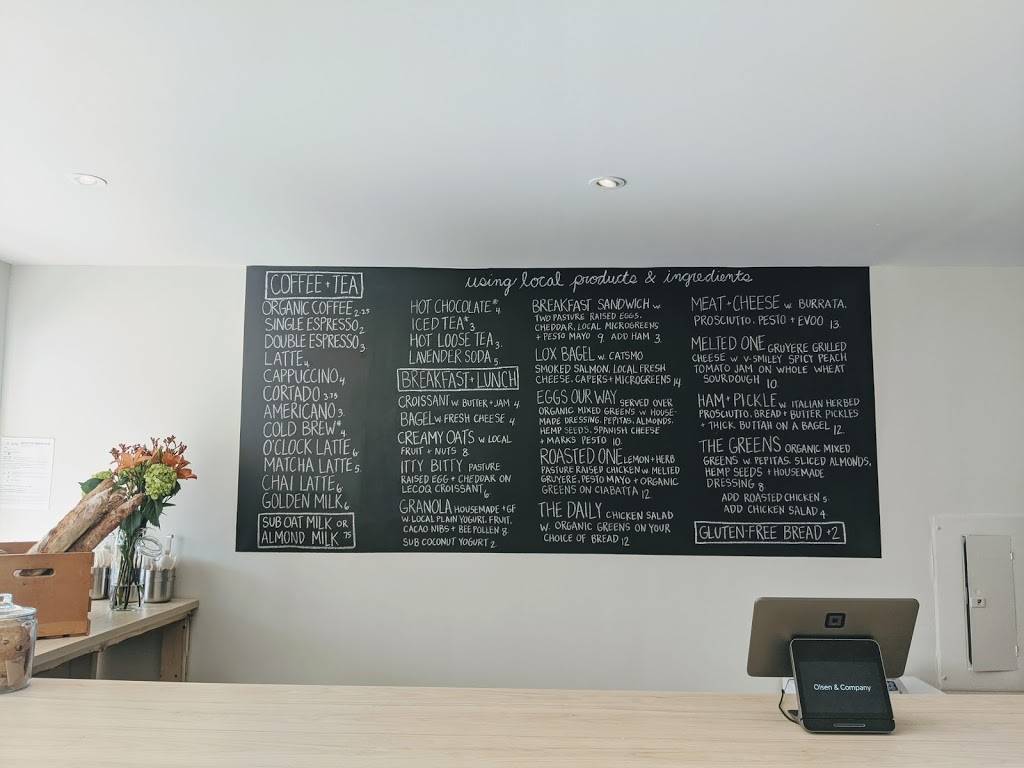 using local products & ingredients
COFFEE + TEA
ORGANIC COFFEE 2.25
SINGLE ESPRESSO 2
DOUBLE ESPRESSO 3
LATTE 4
CAPPUCCINO 4
CORTADO 3.75
AMERICANO 3
COLD BREW* 4
O'CLOCK LATTE 6
MATCHA LATTE 5
CHAI LATTE 6
GOLDEN MILK 6
SUB OAT MILK OR
ALMOND MILK .75
HOT CHOCOLATE* 4
ICED TEA* 3
HOT LOOSE TEA 3
LAVENDER SODA 5
BREAKFAST + LUNCH
CROISSANT W. BUTTER + JAM 4
BAGEL W. FRESH CHEESE 4
CREAMY OATS W. LOCAL
FRUIT + NUTS 8
ITTY BITTY PASTURE
RAISED EGG + CHEDDAR ON
LECOQ CROISSANT 6
GRANOLA HOUSEMADE + GF
W. LOCAL PLAIN YOGURT, FRUIT,
CACAO NIBS + BEE POLLEN 8
SUB COCONUT YOGURT 2
BREAKFAST SANDWICH W.
TWO PASTURE RAISED EGGS,
CHEDDAR, LOCAL MICROGREENS
+ PESTO MAYO 9 ADD HAM 3
LOX BAGEL W. CATSMO
SMOKED SALMON, LOCAL FRESH
CHEESE, CAPERS + MICROGREENS 14
EGGS OUR WAY SERVED OVER
ORGANIC MIXED GREENS W. HOUSE-
MADE DRESSING, PEPITAS, ALMONDS,
HEMP SEEDS, SPANISH CHEESE
+ MARKS PESTO 10
ROASTED ONE LEMON + HERB
PASTURE RAISED CHICKEN W. MELTED
GRUYERE, PESTO MAYO + ORGANIC
GREENS ON CIABATTA 12
THE DAILY CHICKEN SALAD
W. ORGANIC GREENS ON YOUR
CHOICE OF BREAD 12
MEAT + CHEESE W. BURRATA,
PROSCIUTTO, PESTO + EVOO 13
MELTED ONE GRUYERE GRILLED
CHEESE W. V-SMILEY SPICY PEACH
TOMATO JAM ON WHOLE WHEAT
SOURDOUGH 10
HAM + PICKLE W. ITALIAN HERBED
PROSCIUTTO, BREAD + BUTTER PICKLES
+ THICK BUTTAH ON A BAGEL 12
THE GREENS ORGANIC MIXED
GREENS W. PEPITAS, SLICED ALMONDS,
HEMP SEEDS + HOUSEMADE
DRESSING 8
ADD ROASTED CHICKEN 5
ADD CHICKEN SALAD 4
GLUTEN-FREE BREAD +2
Olsen & Company